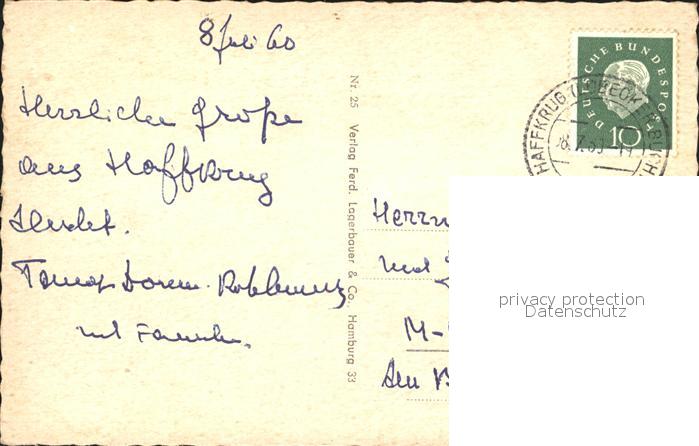 8 Juli 60
Herzliche Grüße
aus Haffkrug
sendet.
mit Familie.
Nr. 25 Verlag Ferd. Lagerbauer & Co., Hamburg 33
DEUTSCHE BUNDESPO
10
HAFFKRUG (LÜBECK
Herrn
und
M-
privacy protection
Datenschutz